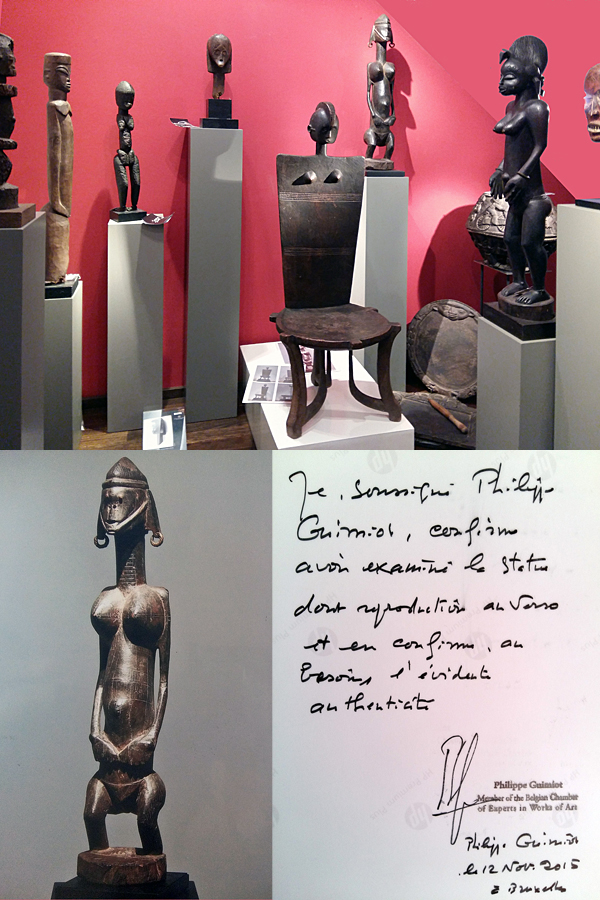 Je, soussigné Philippe
Guimiot, confirme
avoir examiné la statue
dont reproduction au verso
et en confirme, au
besoin, l'évidente
authenticité
Philippe Guimiot
Member of the Belgian Chamber
of Experts in Works of Art
Philippe Guimiot
le 12 Nov. 2015
à Bruxelles